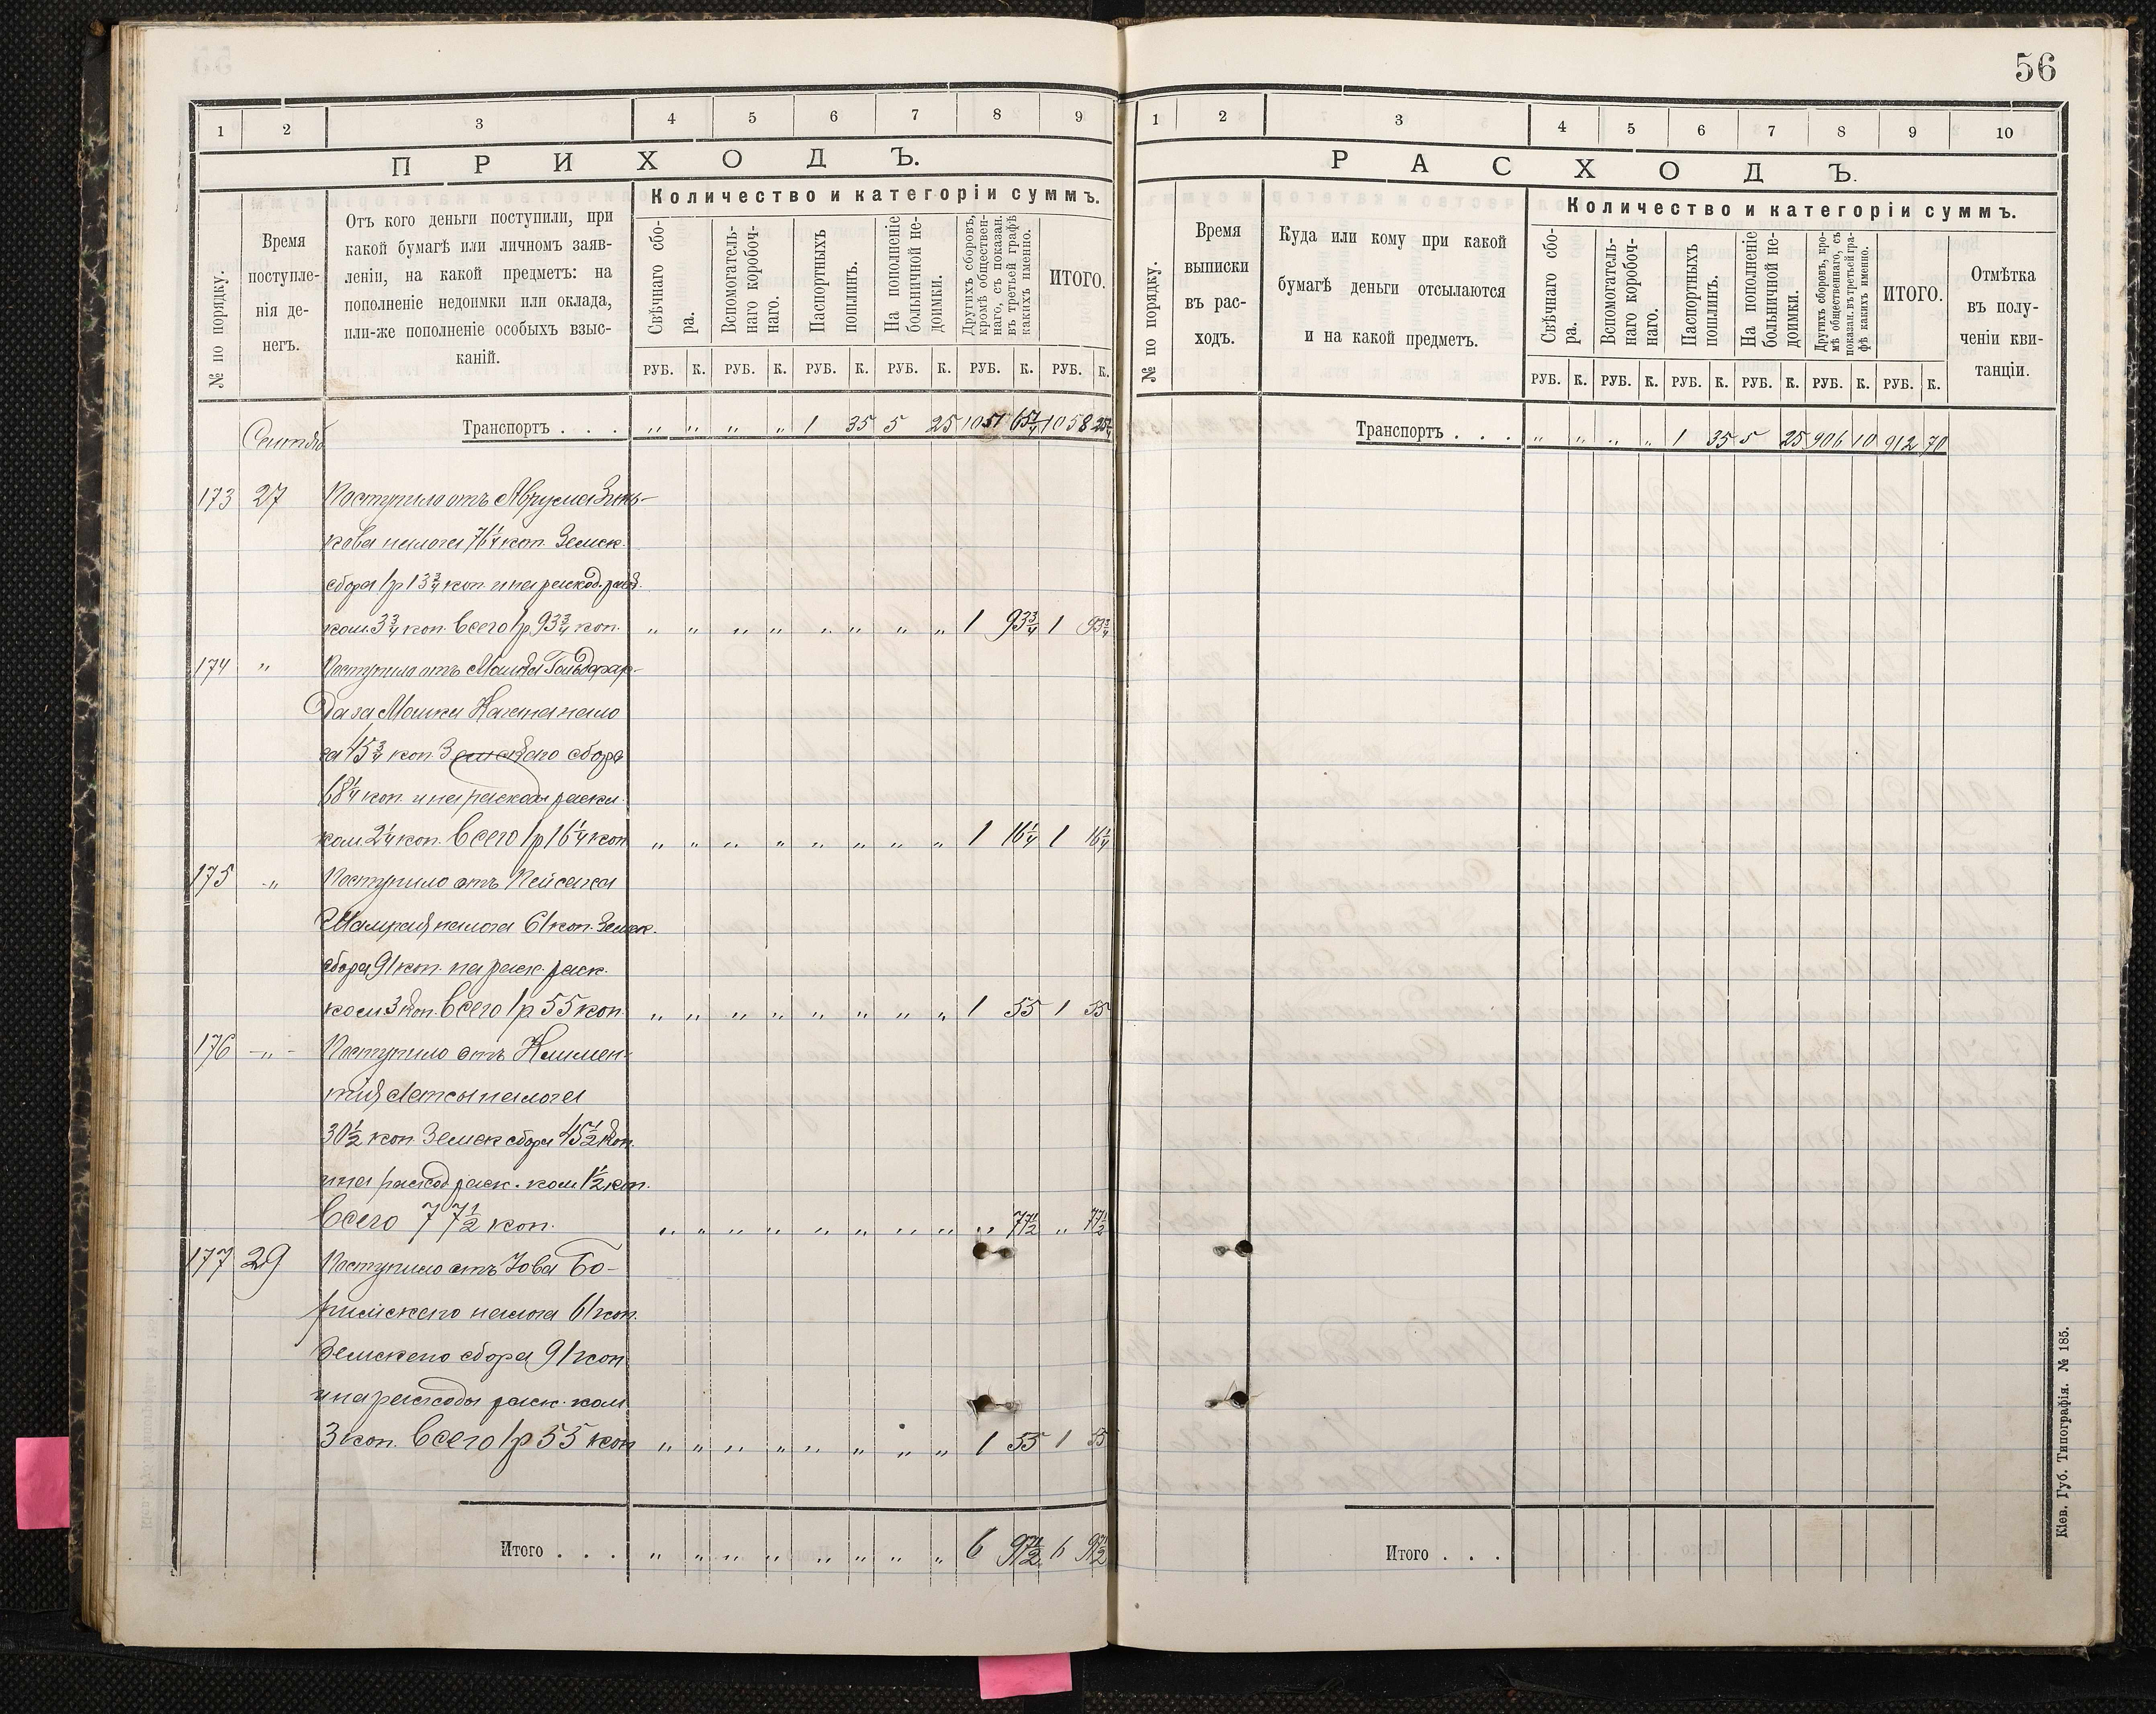 56
1 2 3 4 5 6 7 8 9
ПРИХОДЪ.
№ по порядку.
Время поступле-
нія де-
негъ.
Отъ кого деньги поступили, при
какой бумагѣ или личномъ заяв-
леніи, на какой предметъ: на
пополненіе недоимки или оклада,
или-же пополненіе особыхъ взыс-
каній.
Количество и категоріи суммъ.
Свѣчнаго сбо-
ра.
Вспомогатель-
наго коробоч-
наго.
Паспортныхъ
пошлинъ.
На пополненіе
больничной не-
доимки.
Другихъ сборовъ,
кромѣ обществен-
наго, съ показан.
въ третьей графѣ
какихъ именно.
ИТОГО.
РУБ. К. РУБ. К. РУБ. К. РУБ. К. РУБ. К. РУБ. К.
Транспортъ . . . „ „ „ „ 1 35 5 25 1051 65 1/4 1058 25 1/4
173 27 Поступило отъ Аврума Зинь-
кова налога 76 1/4 коп. Земск.
сбора 1 р 13 3/4 коп. и на расход. раск.
ком. 3 3/4 коп. всего 1 р. 93 3/4 коп. „ „ „ „ „ „ „ „ 1 93 3/4 1 93 3/4
174 „ Поступило отъ
да за Мошка нало
га 45 3/4 коп. Земскаго сбора
68 1/4 коп. и на расходы раскл.
ком. 2 1/4 коп. всего 1 р 16 1/4 коп „ „ „ „ „ „ „ „ 1 16 1/4 1 16 1/4
175 „ Поступило отъ Пейсаха
налога 61 коп. Земск.
сбора 91 коп. на расх. раск.
ком 3 коп. всего 1 р. 55 коп. „ „ „ „ „ „ „ „ 1 55 1 55
176 „ Поступило отъ Климен-
тія налога
30 1/2 коп. Земск сбора 45 1/2 коп.
и на расход. раск. ком 1 1/2 коп.
всего 77 1/2 коп. „ „ „ „ „ „ „ „ „ 77 1/2 „ 77 1/2
177 29 Поступило отъ Іова Бо-
налога 61 коп.
Земскаго сбора 91 коп
и на расходы раск. ком
3 коп. всего 1 р 55 коп „ „ „ „ „ „ „ „ 1 55 1 55
Итого . . . „ „ „ „ „ „ „ „ 6 97 1/2 6 97 1/2
1 2 3 4 5 6 7 8 9 10
РАСХОДЪ.
№ по порядку.
Время
выписки
въ рас-
ходъ.
Куда или кому при какой
бумагѣ деньги отсылаются
и на какой предметъ.
Количество и категоріи суммъ.
Свѣчнаго сбо-
ра.
Вспомогатель-
наго коробоч-
наго.
Паспортныхъ
пошлинъ.
На пополненіе
больничной не-
доимки.
Другихъ сборовъ, кро-
мѣ общественнаго, съ
показан. въ третьей гра-
фѣ какихъ именно.
ИТОГО.
Отмѣтка
въ полу-
ченіи кви-
танціи.
РУБ. К. РУБ. К. РУБ. К. РУБ. К. РУБ. К. РУБ. К.
Транспортъ . . . „ „ „ „ 1 35 5 25 906 10 912 70
Итого . . .
Кіев. Губ. Типографія. № 185.